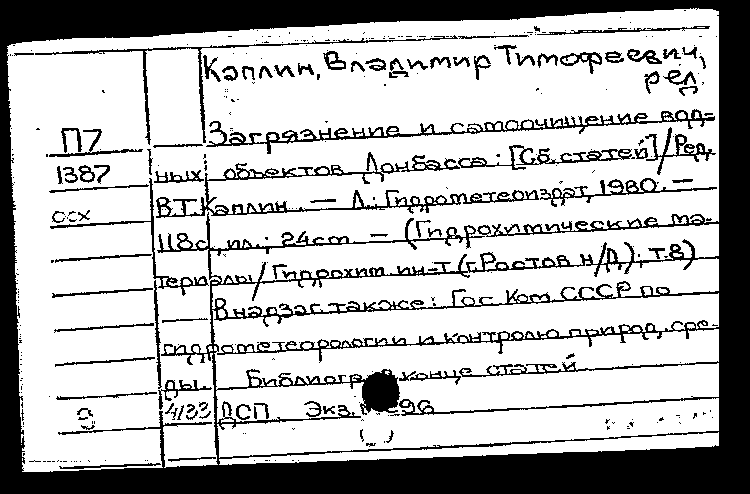 Каплин, Владимир Тимофеевич,
ред.
П7 Загрязнение и самоочищение вод-
1387 ных объектов Донбасса: [Сб. статей]/Ред.
осх В.Т.Каплин. — Л.: Гидрометеоиздат, 1980. —
118с., ил.; 24см — (Гидрохимические ма-
териалы/Гидрохим ин-т (г.Ростов н/Д); т.8)
В надзаг также: Гос Ком СССР по
гидрометеорологии и контролю природ. сре-
ды. Библиогр в конце статей
9 4133 ДСП. Экз. 96